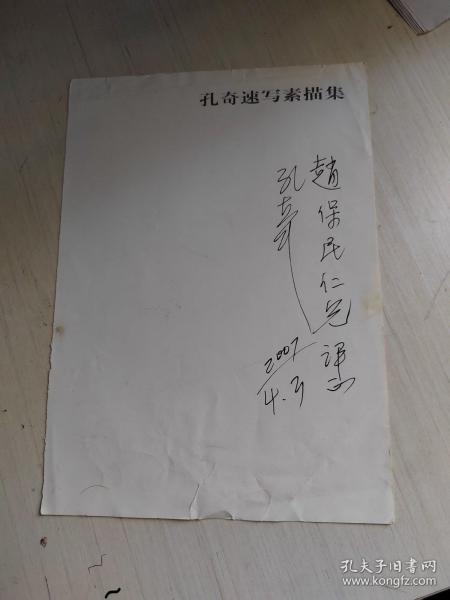 孔奇速写素描集
趙保民仁兄
孔奇
2007
4.3
孔夫子旧书网
www.kongfz.com